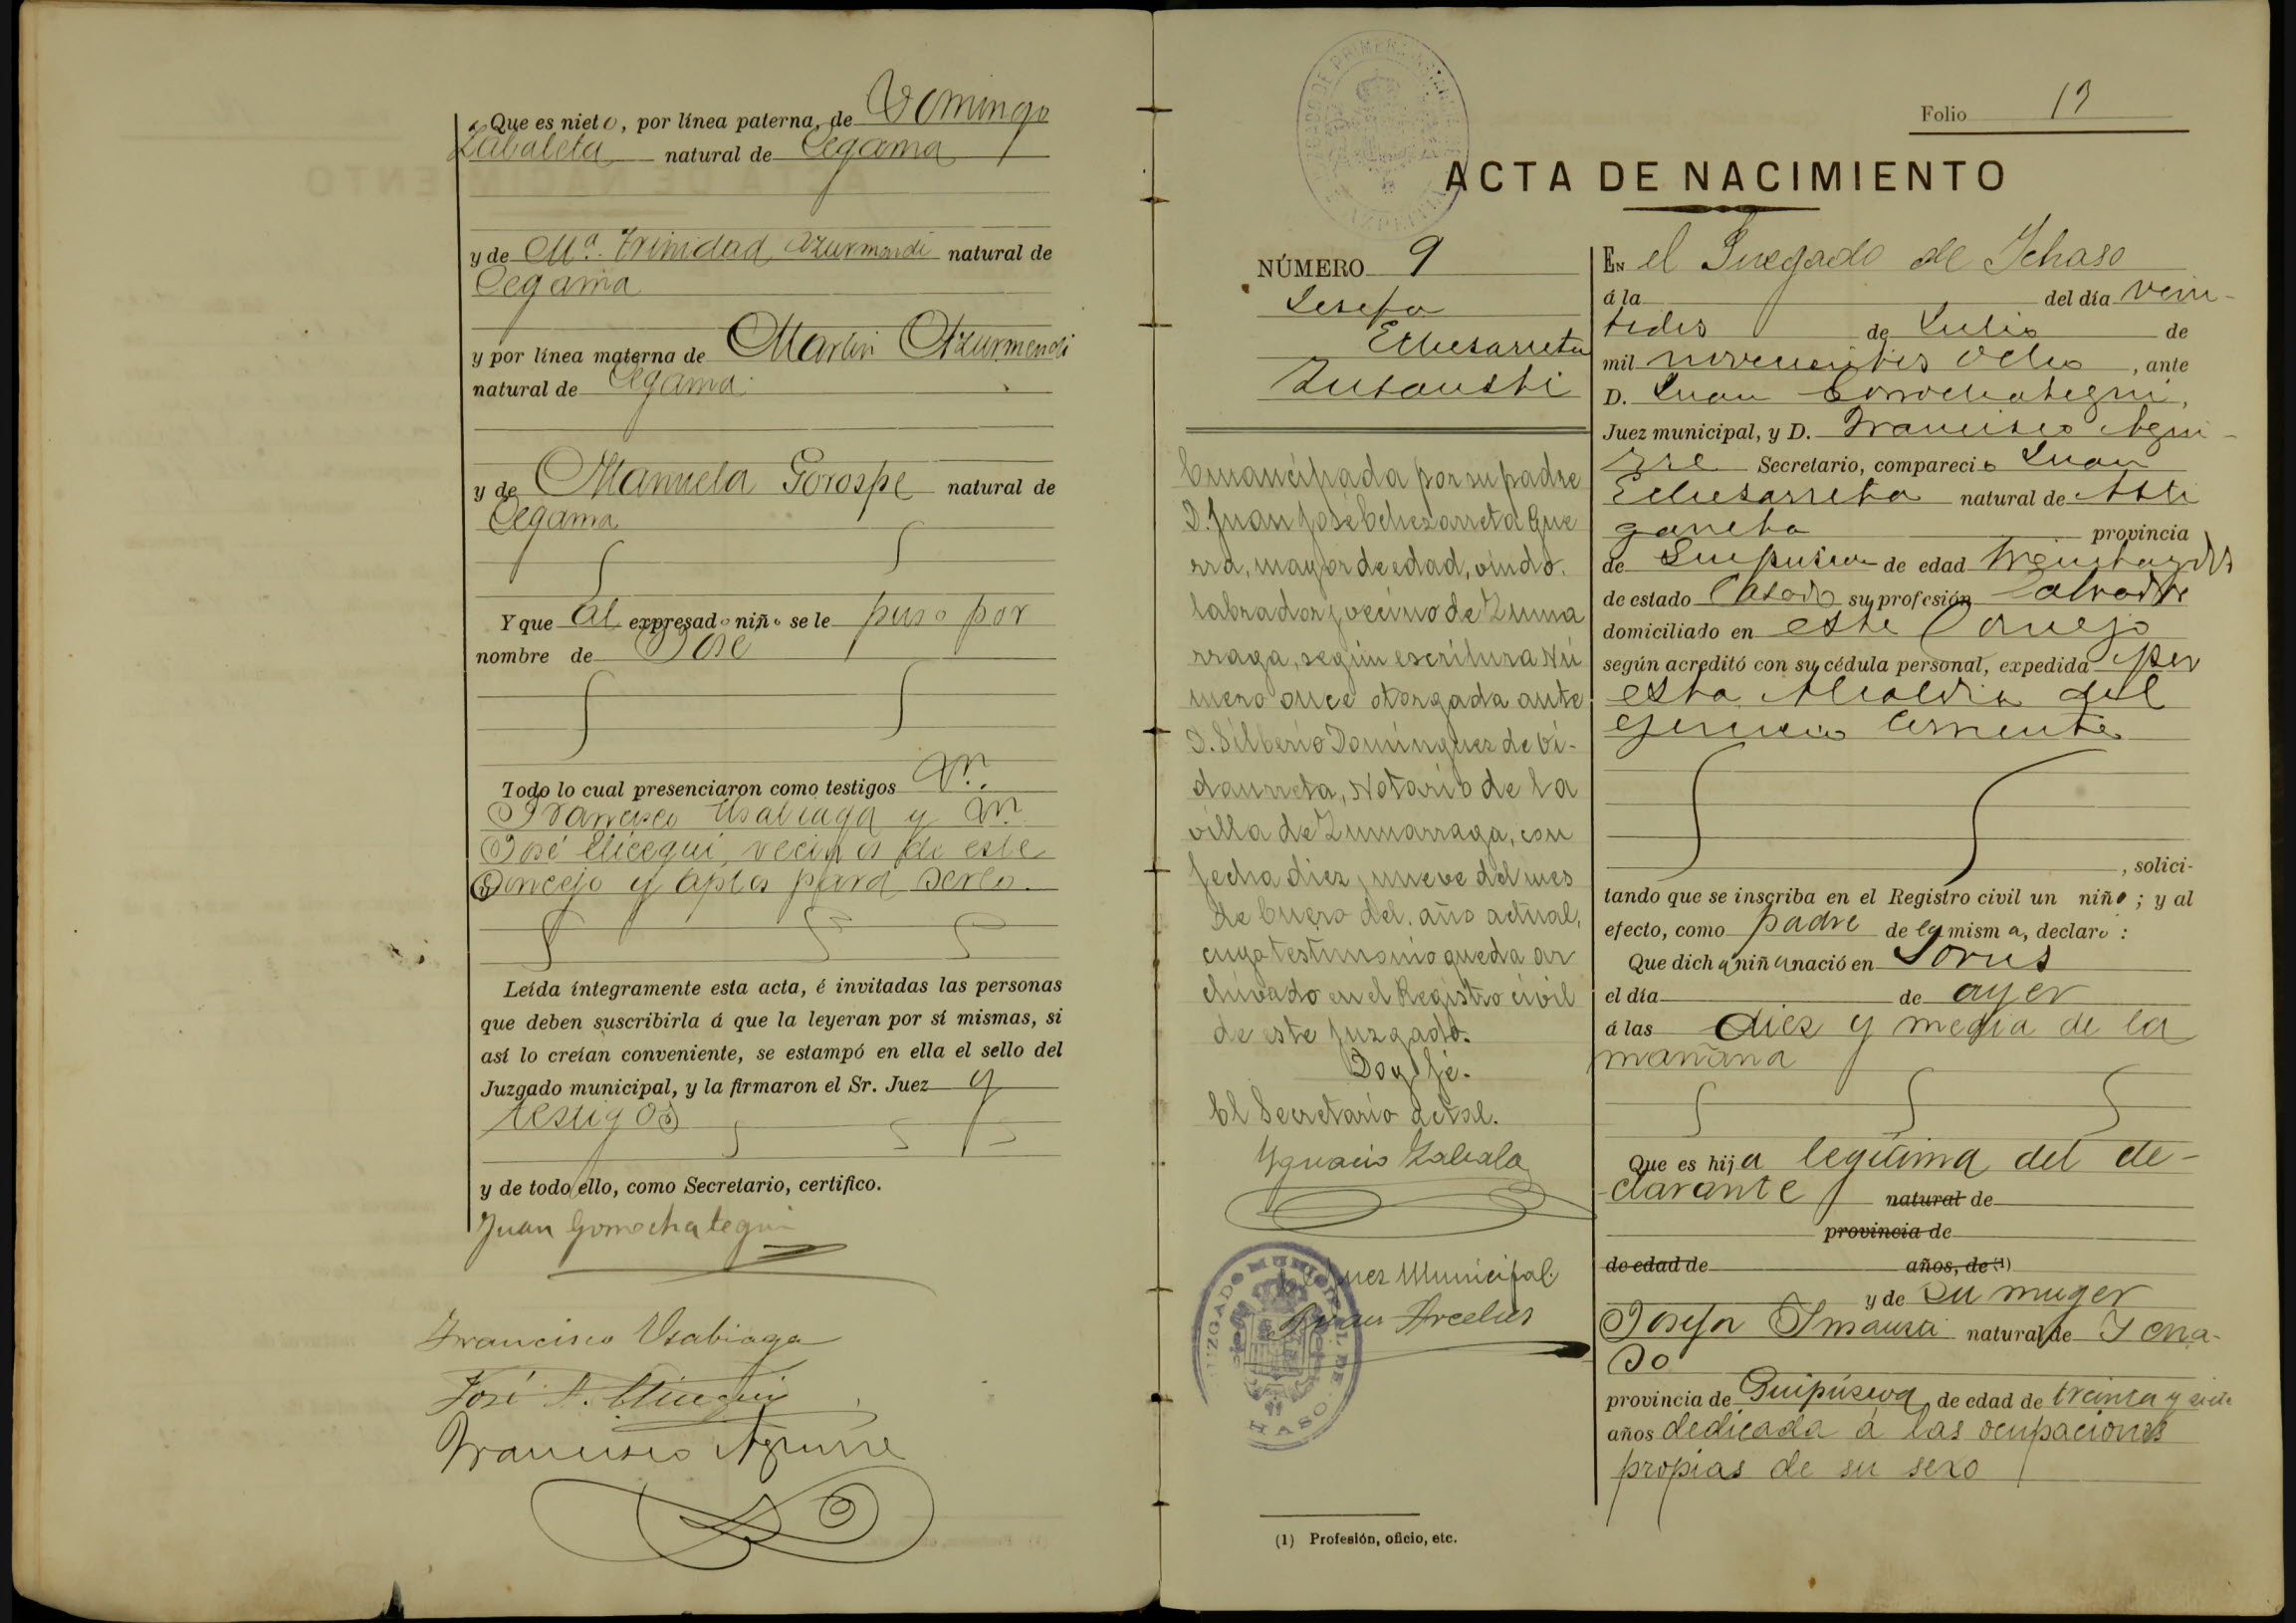 Que es nieto, por línea paterna, de Domingo
Zabaleta natural de Cegama
y de Mª. Trinidad Azurmendi natural de
Cegama
y por línea materna de Martin Azurmendi
natural de Cegama
y de Manuela Gorospe natural de
Cegama
Y que al expresado niño se le puso por
nombre de José
Todo lo cual presenciaron como testigos Dn.
Francisco Usabiaga y Dn.
José Elicegui, vecinos de este
Concejo y aptos para serlo.
Leída íntegramente esta acta, é invitadas las personas
que deben suscribirla á que la leyeran por sí mismas, si
así lo creían conveniente, se estampó en ella el sello del
Juzgado municipal, y la firmaron el Sr. Juez y
testigos
y de todo ello, como Secretario, certifico.
Juan Gorrochategui
Francisco Usabiaga
José
Francisco Aguirre
Folio 13
ACTA DE NACIMIENTO
NÚMERO 9
Josefa
Echesarreta
Insausti
Emancipada por su padre
D. Juan José Echezarreta Gue
rra, mayor de edad, viudo,
labrador y vecino de Zuma
rraga, según escritura Nú
mero once otorgada ante
D. Silberio Domínguez de Vi-
daurreta, Notario de la
villa de Zumarraga, con
fecha diez y nueve del mes
de Enero del año actual,
cuyo testimonio queda ar
chivado en el Registro civil
de este Juzgado.
Doy fé.
El Secretario actal.
Ygnacio Zabala
El Juez Municipal.
Juan Arcelus
JUZGADO MUNICIPAL DE
(1) Profesión, oficio, etc.
EN el Juzgado de Ichaso
á la del día vein-
tidos de Julio de
mil novecientos ocho, ante
D. Juan Gorrochategui,
Juez municipal, y D. Francisco Agui-
rre Secretario, compareció Juan
Echesarreta natural de Asti
garreta provincia
de Guipúscoa de edad treinta y dos
de estado Casado su profesión Labrador
domiciliado en este Concejo
según acreditó con su cédula personal, expedida por
esta Alcaldia del
egercicio corriente
, solici-
tando que se inscriba en el Registro civil un niño; y al
efecto, como padre de la misma, declaró:
Que dicha niña nació en Dorus
el día de ayer
á las diez y media de la
mañana
Que es hija legitima del de-
clarante natural de
provincia de
de edad de años, de (1)
y de su muger
Josefa Insausti natural de Icha-
so
provincia de Guipúscoa, de edad de treinta y siete
años dedicada á las ocupaciones
propias de su sexo